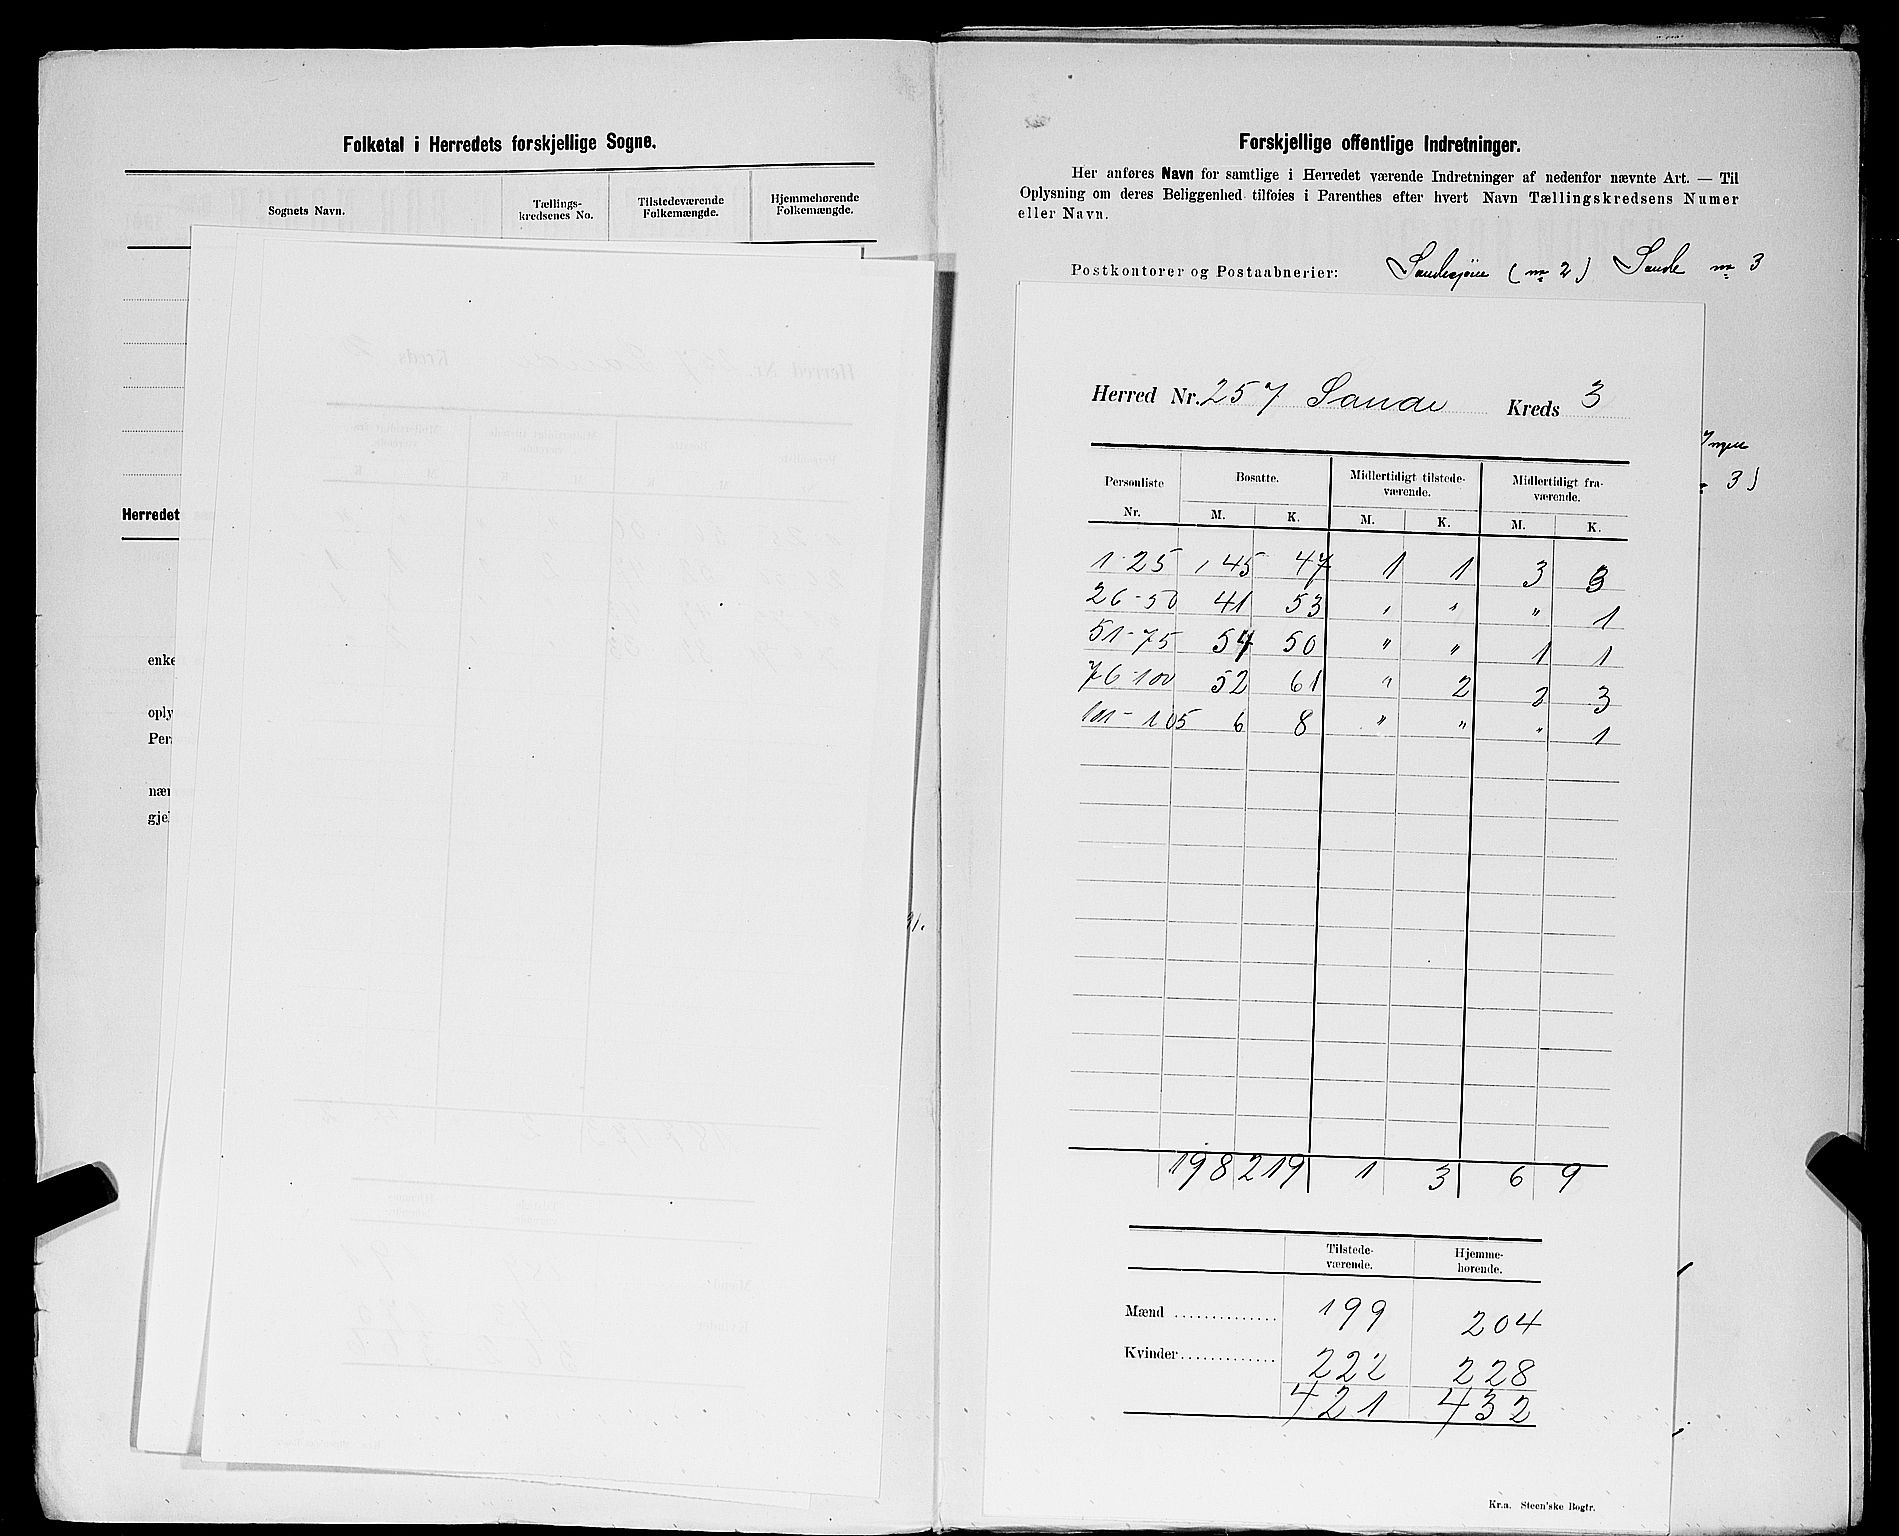 Folketal i Herredets forskjellige Sogne.
Sognets Navn. Tællings-kredsenes No. Tilstedeværende Folkemængde. Hjemmehørende Folkemængde.
Herredet
enke
oply
Per
nær
gje
31.
Forskjellige offentlige Indretninger.
Her anføres Navn for samtlige i Herredet værende Indretninger af nedenfor nævnte Art. — Til
Oplysning om deres Beliggenhed tilføies i Parenthes efter hvert Navn Tællingskredsens Numer
eller Navn.
Postkontorer og Postaabnerier: (no 2) Sande no 3
3)
Herred Nr. 257 Sande Kreds 3
Personliste Nr. Bosatte. Midlertidigt tilstede-værende. Midlertidigt fra-værende.
M. K. M. K. M. K.
1-25 45 47 1 1 3 3
26-50 41 53 " " " 1
51-75 54 50 " " 1 1
76-100 52 61 " 2 2 3
101-105 6 8 " " " 1
198 219 1 3 6 9
Tilstede-værende. Hjemme-hørende.
Mænd .............. 199 204
Kvinder ............. 222 228
421 432
Kr.a. Steen'ske Bogtr.